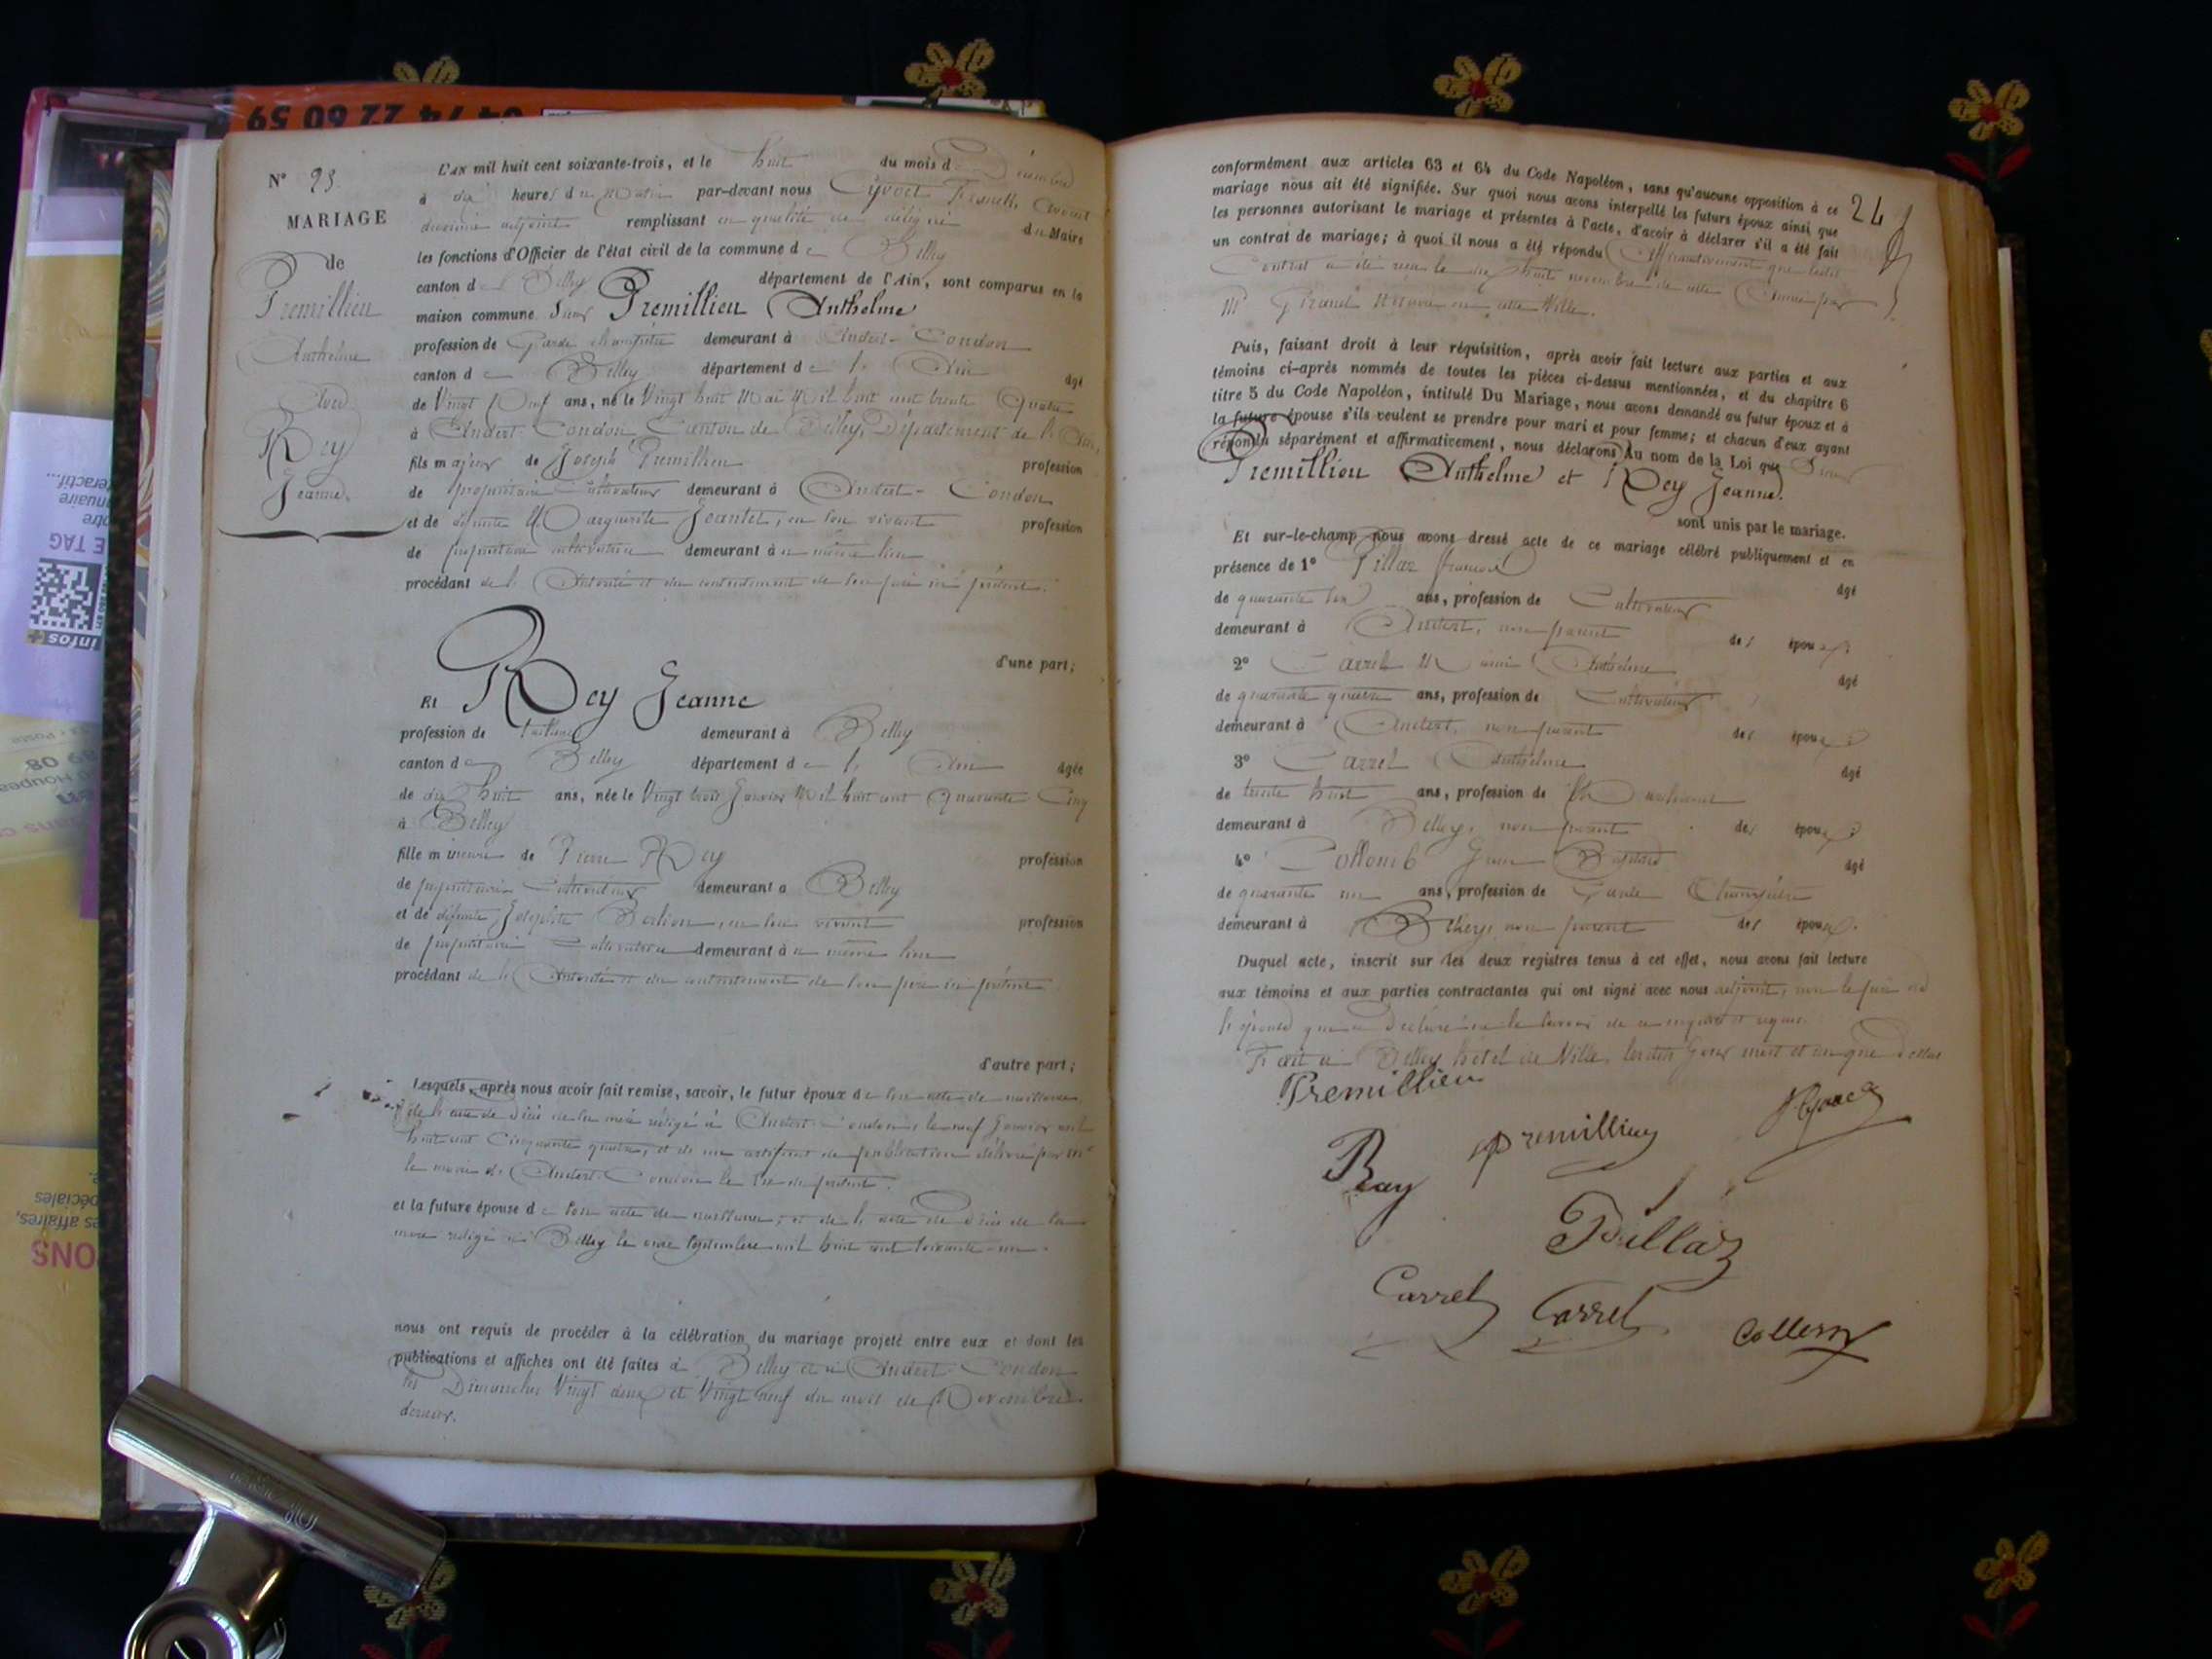 04 74 22 60 59
N° 23.
MARIAGE
de
Premillieu
Anthelme
Avec
Rey
Jeanne
L'an mil huit cent soixante-trois, et le huit du mois de Décembre
à dix heures du Matin par-devant nous Cyvoct Avocat
deuxième adjoint remplissant en qualité de délégué du Maire
les fonctions d'Officier de l'état civil de la commune de Belley
canton de Belley département de l'Ain, sont comparus en la
maison commune Sieur Premillieu Anthelme
profession de Garde champêtre demeurant à Andert-Condon
canton de Belley département de l' Ain âgé
de Vingt Neuf ans, né le Vingt huit Mai Mil huit cent trente Quatre
à Andert-Condon, Canton de Belley, Département de l'Ain,
fils majeur de Joseph Premillieu profession
de propriétaire Cultivateur demeurant à Andert-Condon
et de défunte Marguerite Jeantet, en son vivant profession
de propriétaire cultivatrice demeurant à u même lieu
procédant de l'Autorité et du consentement de son père ici présent.
d'une part;
Et Rey Jeanne
profession de tailleuse demeurant à Belley
canton de Belley département de l' Ain âgée
de dix huit ans, née le Vingt trois Janvier Mil huit cent Quarante Cinq
à Belley
fille mineure de Pierre Rey profession
de propriétaire Cultivateur demeurant à Belley
et de défunte Josephte Berlion, en son vivant profession
de propriétaire Cultivatrice demeurant à u même lieu
procédant de l'Autorité et du consentement de son père ici présent
d'autre part;
Lesquels, après nous avoir fait remise, savoir, le futur époux de son acte de naissance,
de l'acte de décès de sa mère rédigé à Andert-Condon, le neuf Janvier mil
huit cent Cinquante quatre, et de un certificat de publication délivré par Mr
le maire de Andert-Condon le six du présent.
et la future épouse de son acte de naissance, et de l'acte de décès de sa
mère rédigé à Belley le onze Septembre mil huit cent soixante-un.
nous ont requis de procéder à la célébration du mariage projeté entre eux et dont les
publications et affiches ont été faites à Belley et à Andert-Condon
les Dimanches Vingt deux et Vingt neuf du mois de Novembre
dernier.
24
conformément aux articles 63 et 64 du Code Napoléon, sans qu'aucune opposition à ce
mariage nous ait été signifiée. Sur quoi nous avons interpellé les futurs époux ainsi que
les personnes autorisant le mariage et présentes à l'acte, d'avoir à déclarer s'il a été fait
un contrat de mariage; à quoi il nous a été répondu Affirmativement que ledit
Contrat a été reçu le dix huit novembre de cette Année par
Me Giraud Notaire en cette Ville.
Puis, faisant droit à leur réquisition, après avoir fait lecture aux parties et aux
témoins ci-après nommés de toutes les pièces ci-dessus mentionnées, et du chapitre 6
titre 5 du Code Napoléon, intitulé Du Mariage, nous avons demandé au futur époux et à
la future épouse s'ils veulent se prendre pour mari et pour femme; et chacun d'eux ayant
répondu séparément et affirmativement, nous déclarons Au nom de la Loi que Sieur
Premillieu Anthelme et Rey Jeanne.
sont unis par le mariage.
Et sur-le-champ nous avons dressé acte de ce mariage célébré publiquement et en
présence de 1° Pillaz François âgé
de quarante six ans, profession de Cultivateur
demeurant à Andert, non parent des époux
2° Carrel Anthelme âgé
de quarante quatre ans, profession de Cultivateur
demeurant à Andert, non parent des époux
3° Carrel Anthelme âgé
de trente huit ans, profession de Marchand
demeurant à Belley, non parent des époux
4° Collomb Jean Baptiste âgé
de quarante un ans, profession de Garde Champêtre
demeurant à Belley, non parent des époux.
Duquel acte, inscrit sur les deux registres tenus à cet effet, nous avons fait lecture
aux témoins et aux parties contractantes qui ont signé avec nous adjoint, non
l'épouse qui a déclaré ne le savoir de ce enquise et requise.
Fait à Belley hôtel de Ville, lesdits Jour mois et an que dessus
Premillieu
Ray
premillieu
Pillaz
Carrel
Carrel
Collom